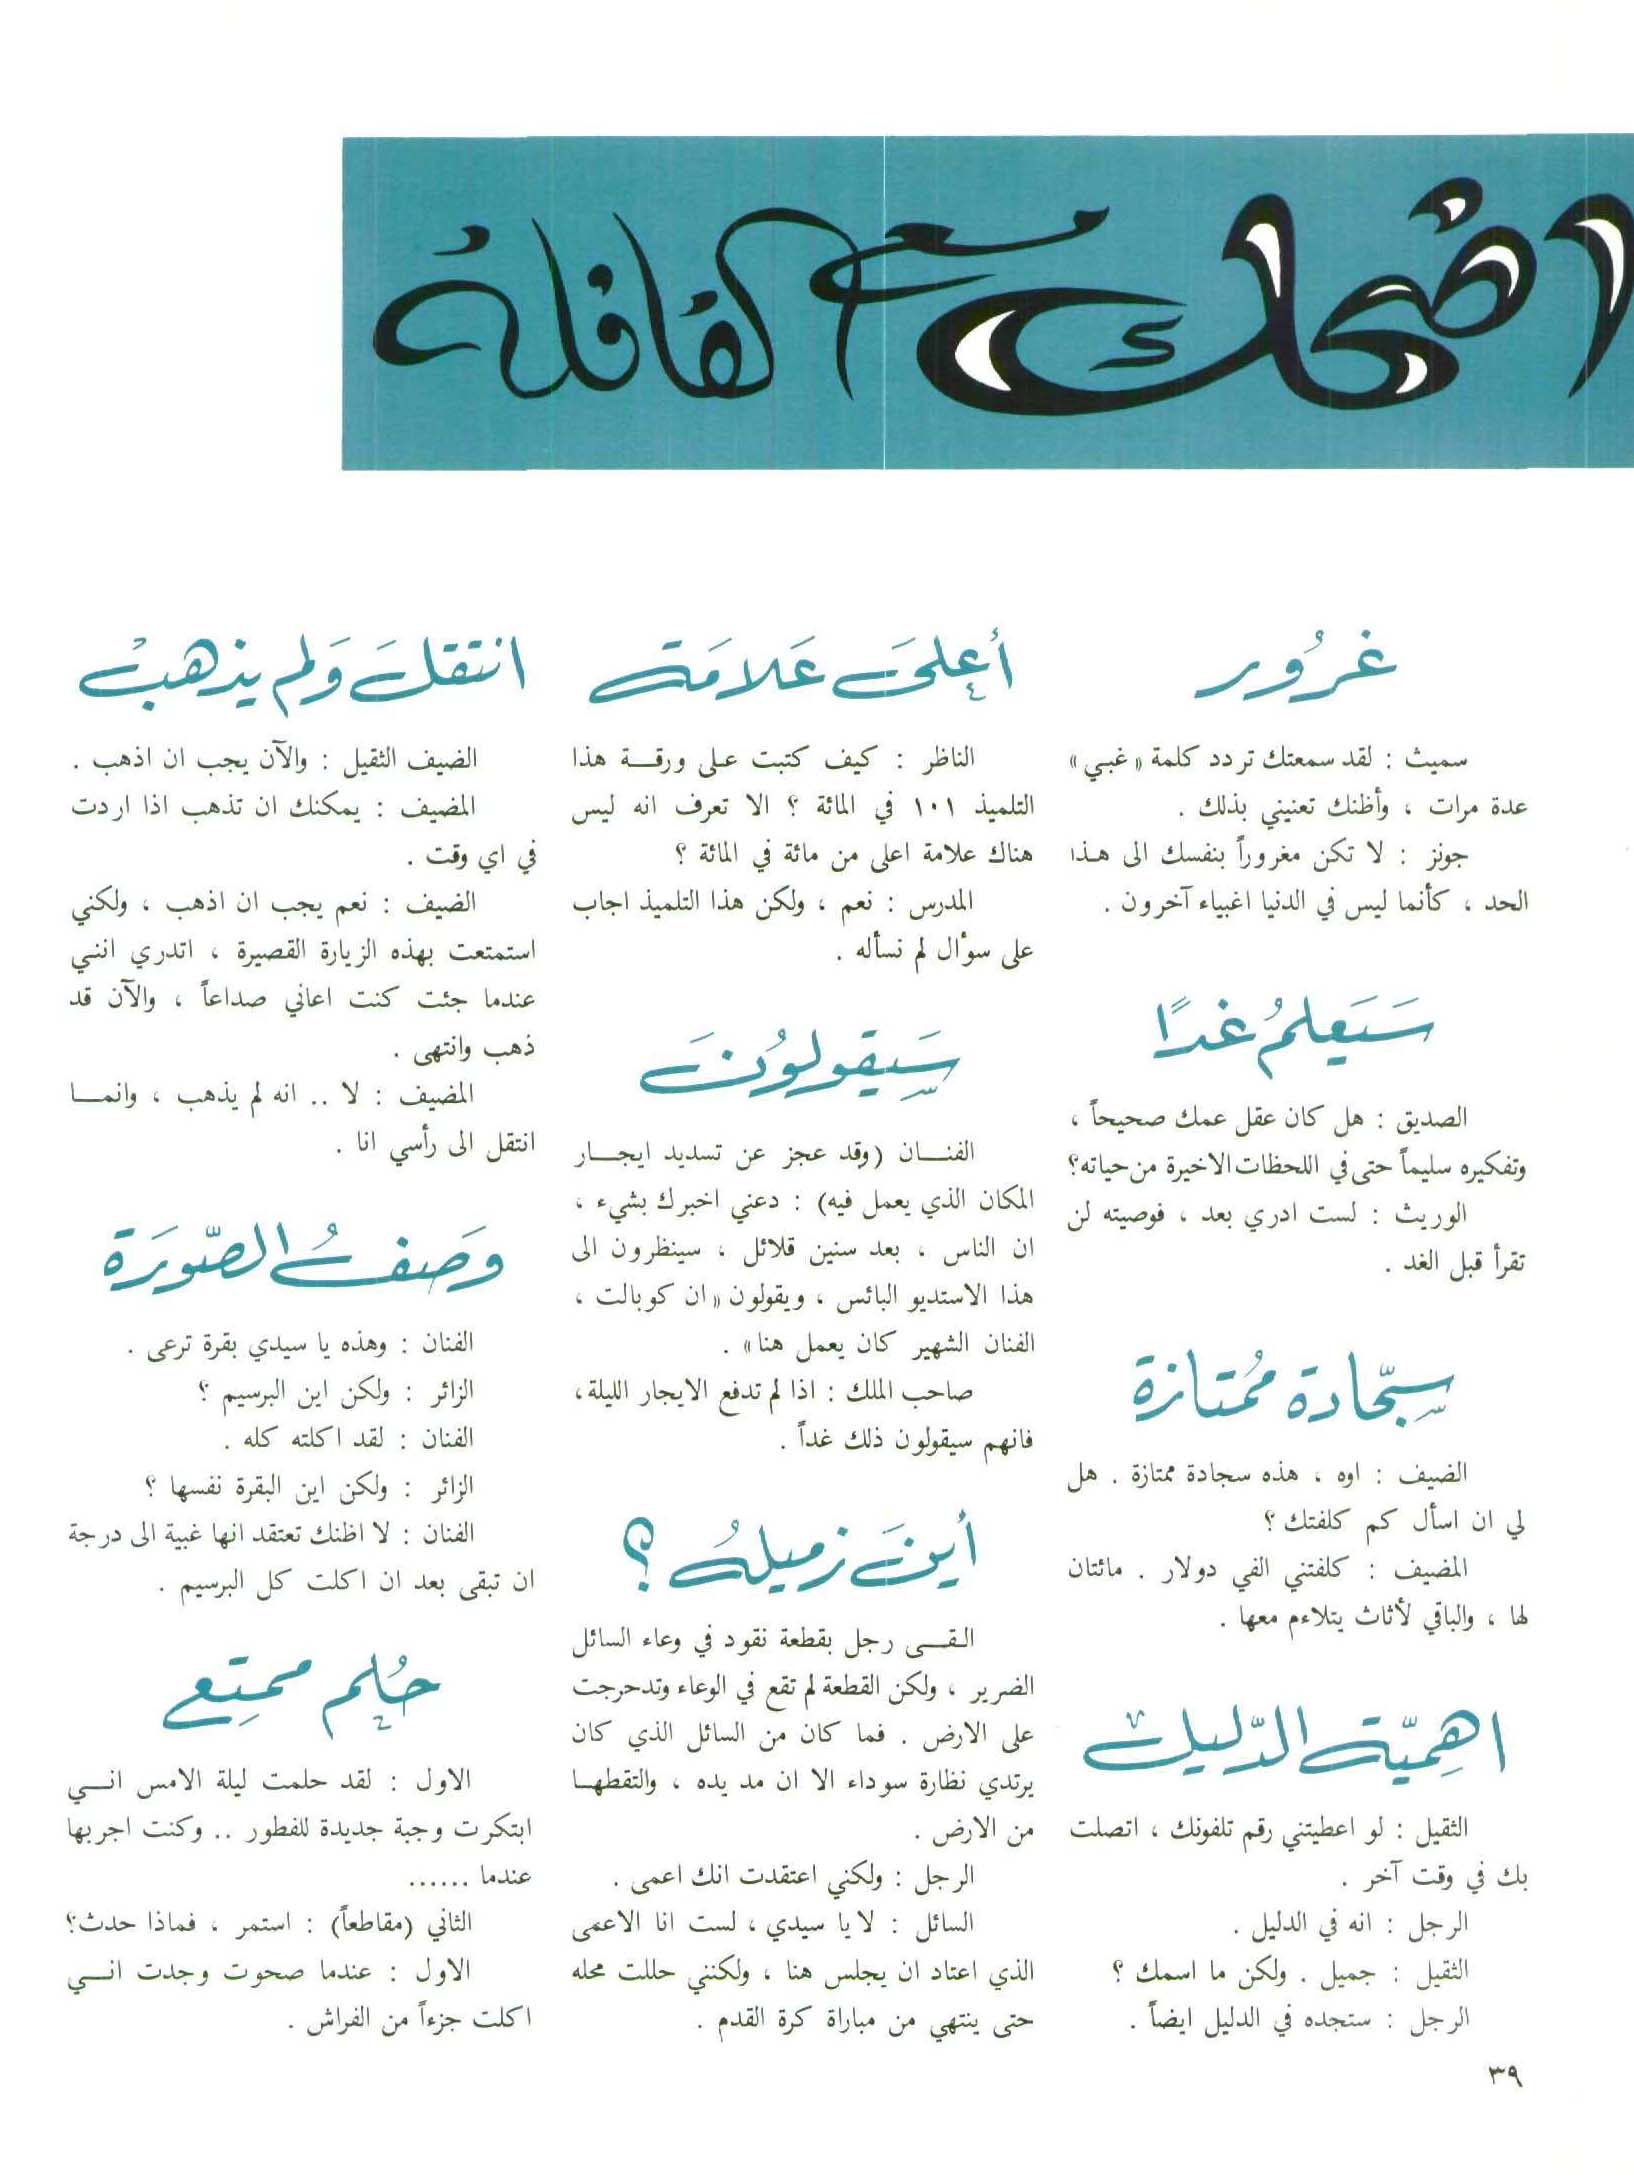 اضحك مع القافلة
غرُور
سميث : لقد سمعتك تردد كلمة «غبي»
عدة مرات ، وأظنك تعنيني بذلك .
جونز : لا تكن مغروراً بنفسك الى هـذا
الحد ، كأنما ليس في الدنيا اغبياء آخرون .
سَيَعلمُ غدًا
الصديق : هل كان عقل عمك صحيحاً ،
وتفكيره سليماً حتى في اللحظات الاخيرة من حياته؟
الوريث : لست ادري بعد ، فوصيته لن
تقرأ قبل الغد .
سجّادة ممُتازة
الضيف : اوه ، هذه سجادة ممتازة . هل
لي ان اسأل كم كلفتك ؟
المضيف : كلفتني الفي دولار . مائتان
لها ، والباقي لأثاث يتلاءم معها .
اهمِيّة الدّليل
الثقيل : لو اعطيتني رقم تلفونك ، اتصلت
بك في وقت آخر .
الرجل : انه في الدليل .
الثقيل : جميل . ولكن ما اسمك ؟
الرجل : ستجده في الدليل ايضاً .
أعلىَ عَلامَة
الناظر : كيف كتبت عـلى ورقــة هذا
التلميذ ١٠١ في المائة ؟ الا تعرف انه ليس
هناك علامة اعلى من مائة في المائة ؟
المدرس : نعم ، ولكن هذا التلميذ اجاب
على سوأل لم نسأله .
سَيقولوُنَ
الفنــان (وقد عجز عن تسديد ايجــار
المكان الذي يعمل فيه) : دعني اخبرك بشيء ،
ان الناس ، بعد سنين قلائل ، سينظرون الى
هذا الاستديو البائس ، ويقولون «ان كوبالت ،
الفنان الشهير كان يعمل هنا» .
صاحب الملك : اذا لم تدفع الايجار الليلة،
فانهم سيقولون ذلك غداً .
أينَ زميلهُ ؟
القــى رجل بقطعة نقود في وعاء السائل
الضرير ، ولكن القطعة لم تقع في الوعاء وتدحرجت
على الارض . فما كان من السائل الذي كان
يرتدي نظارة سوداء الا ان مد يده ، والتقطهـا
من الارض .
الرجل : ولكني اعتقدت انك اعمى .
السائل : لا يا سيدي ، لست انا الاعمى
الذي اعتاد ان يجلس هنا ، ولكنني حللت محله
حتى ينتهي من مباراة كرة القدم .
انتقلَ وَلم يذهبْ
الضيف الثقيل : والآن يجب ان اذهب .
المضيف : يمكنك ان تذهب اذا اردت
في اي وقت .
الضيف : نعم يجب ان اذهب ، ولكني
استمتعت بهذه الزيارة القصيرة ، اتدري انني
عندما جئت كنت اعاني صداعاً ، والآن قد
ذهب وانتهى .
المضيف : لا .. انه لم يذهب ، وانمــا
انتقل الى رأسي انا .
وَصفُ الصّورَة
الفنان : وهذه يا سيدي بقرة ترعى .
الزائر : ولكن اين البرسيم ؟
الفنان : لقد اكلته كله .
الزائر : ولكن اين البقرة نفسها ؟
الفنان : لا اظنك تعتقد انها غبية الى درجة
ان تبقى بعد ان اكلت كل البرسيم .
حُلم ممتِع
الاول : لقد حلمت ليلة الامس انــي
ابتكرت وجبة جديدة للفطور .. وكنت اجربها
عندما ......
الثاني (مقاطعاً) : استمر ، فماذا حدث؟
الاول : عندما صحوت وجدت انــي
اكلت جزءاً من الفراش .
٣٩